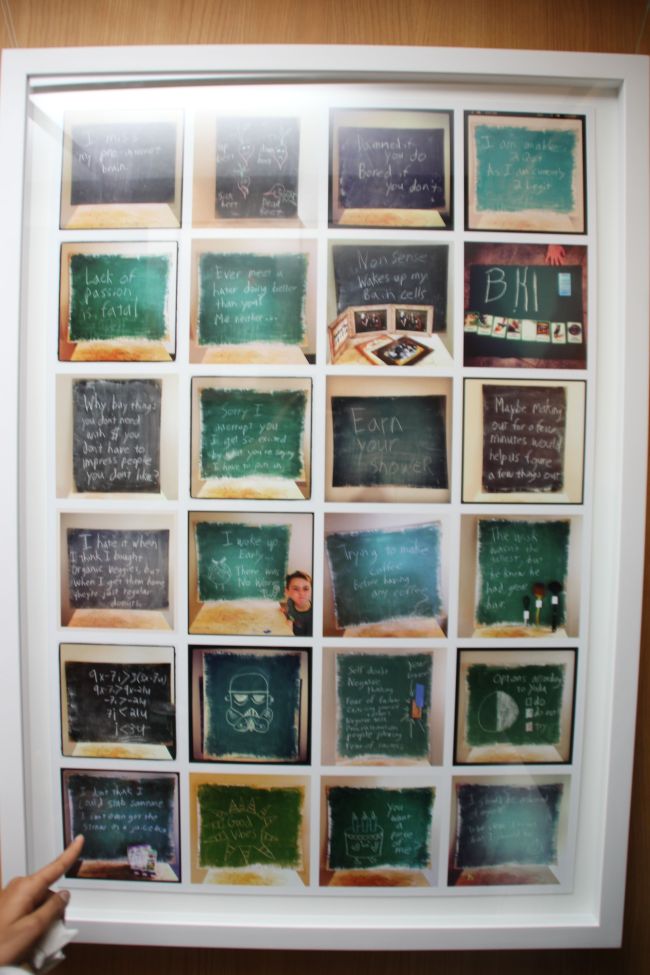 I miss
my pre-internet
brain.
Dead
Beet
Damned if
you do
Bored if
you don't
I am unable
2 quit
As I am currently
2 legit
Lack of
passion
is fatal
Ever meet a
hater doing better
than you?
Me neither...
Nonsense
wakes up my
Brain cells
BKI
Why buy things
you don't need
with $ you
don't have to
impress people
you don't like?
Sorry I
interrupt you
I get so excited
by what you're saying
I have to join in
Earn
your
shower
Maybe making
out for a few
minutes would
help us figure
a few things out
I hate it when
I think I bought
Organic veggies, but
when I get them home
they're just regular
donuts.
I woke up
Early...
There was
No Worm
Trying to make
coffee
Before having
any coffee
The wish
wasn't the
tallest, but
he knew he
had great
hair.
9x-7i>3(3x-7u)
9x-7i>9x-21u
-7i>-21u
7i<21u
i<3u
Self doubt
Negative
thinking
Fear of failure
others
Negative self
Procrastination
people pleasing
Fear of success
your
Options according
to Yoda
do
do not
try
I don't think I
could stab someone
I can't even get the
straw in a juice box
Good
Vibes
you
want
a piece
of me?